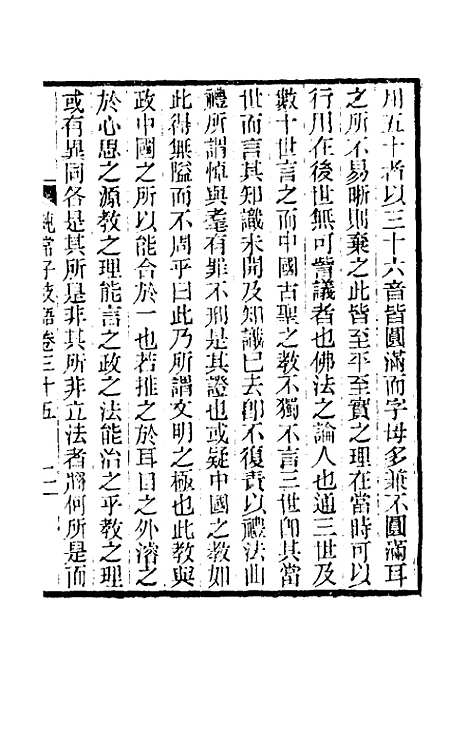 用五十者以三十六音皆圓滿而字母多兼不圓滿耳
之所不易晰則棄之此皆至平至實之理在當時可以
行用在後世無可訾議者也佛法之論人也通三世及
數十世言之而中國古聖之教不獨不言三世卽其當
世而言其知識未開及知識已去卽不復責以禮法曲
禮所謂悼與耄有罪不刑是其證也或疑中國之教如
此得無隘而不周乎曰此乃所謂文明之極也此教與
政中國之所以能合於一也若推之於耳目之外溶之
於心思之源教之理能言之政之法能治之乎教之理
或有異同各是其所是非其所非立法者將何所是而
純常子枝語卷三十五
二